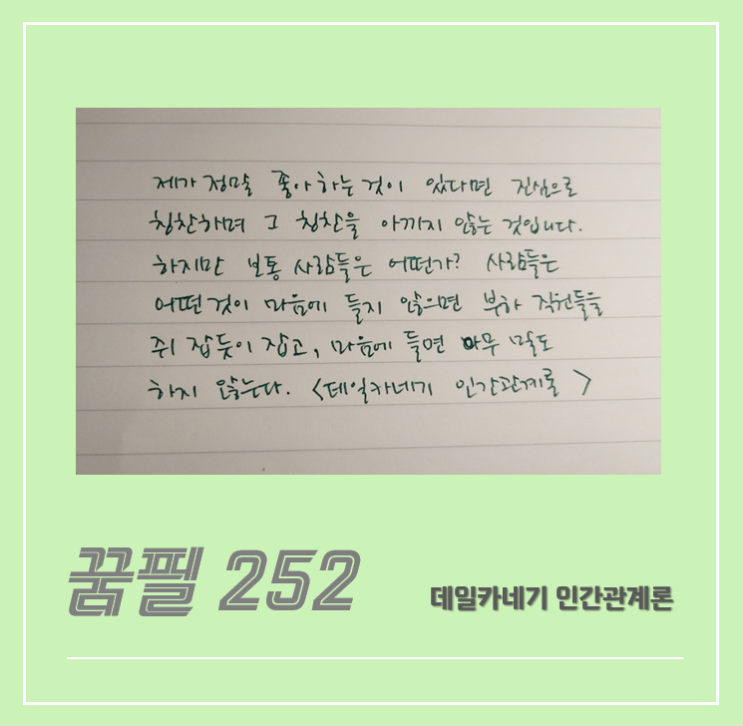 제가 정말 좋아하는 것이 있다면 진심으로
칭찬하며 그 칭찬을 아끼지 않는 것입니다.
하지만 보통 사람들은 어떤가? 사람들은
어떤 것이 마음에 들지 않으면 부하 직원들을
쥐 잡듯이 잡고, 마음에 들면 아무 말도
하지 않는다. <데일카네기 인간관계론>
꿈필 252
데일카네기 인간관계론